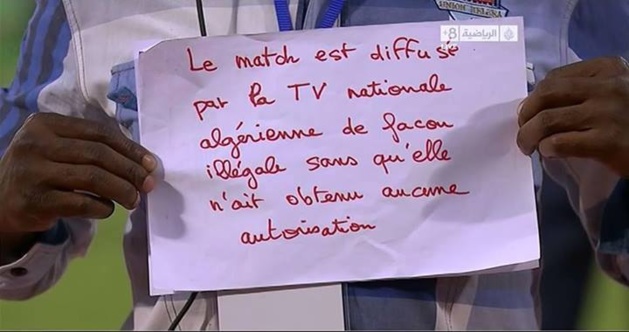 UNION BELOUIZ
+8 الرياضية
Le match est diffusé
par la TV nationale
algérienne de facon
illégale sans qu'elle
n'ait obtenu aucune
autorisation